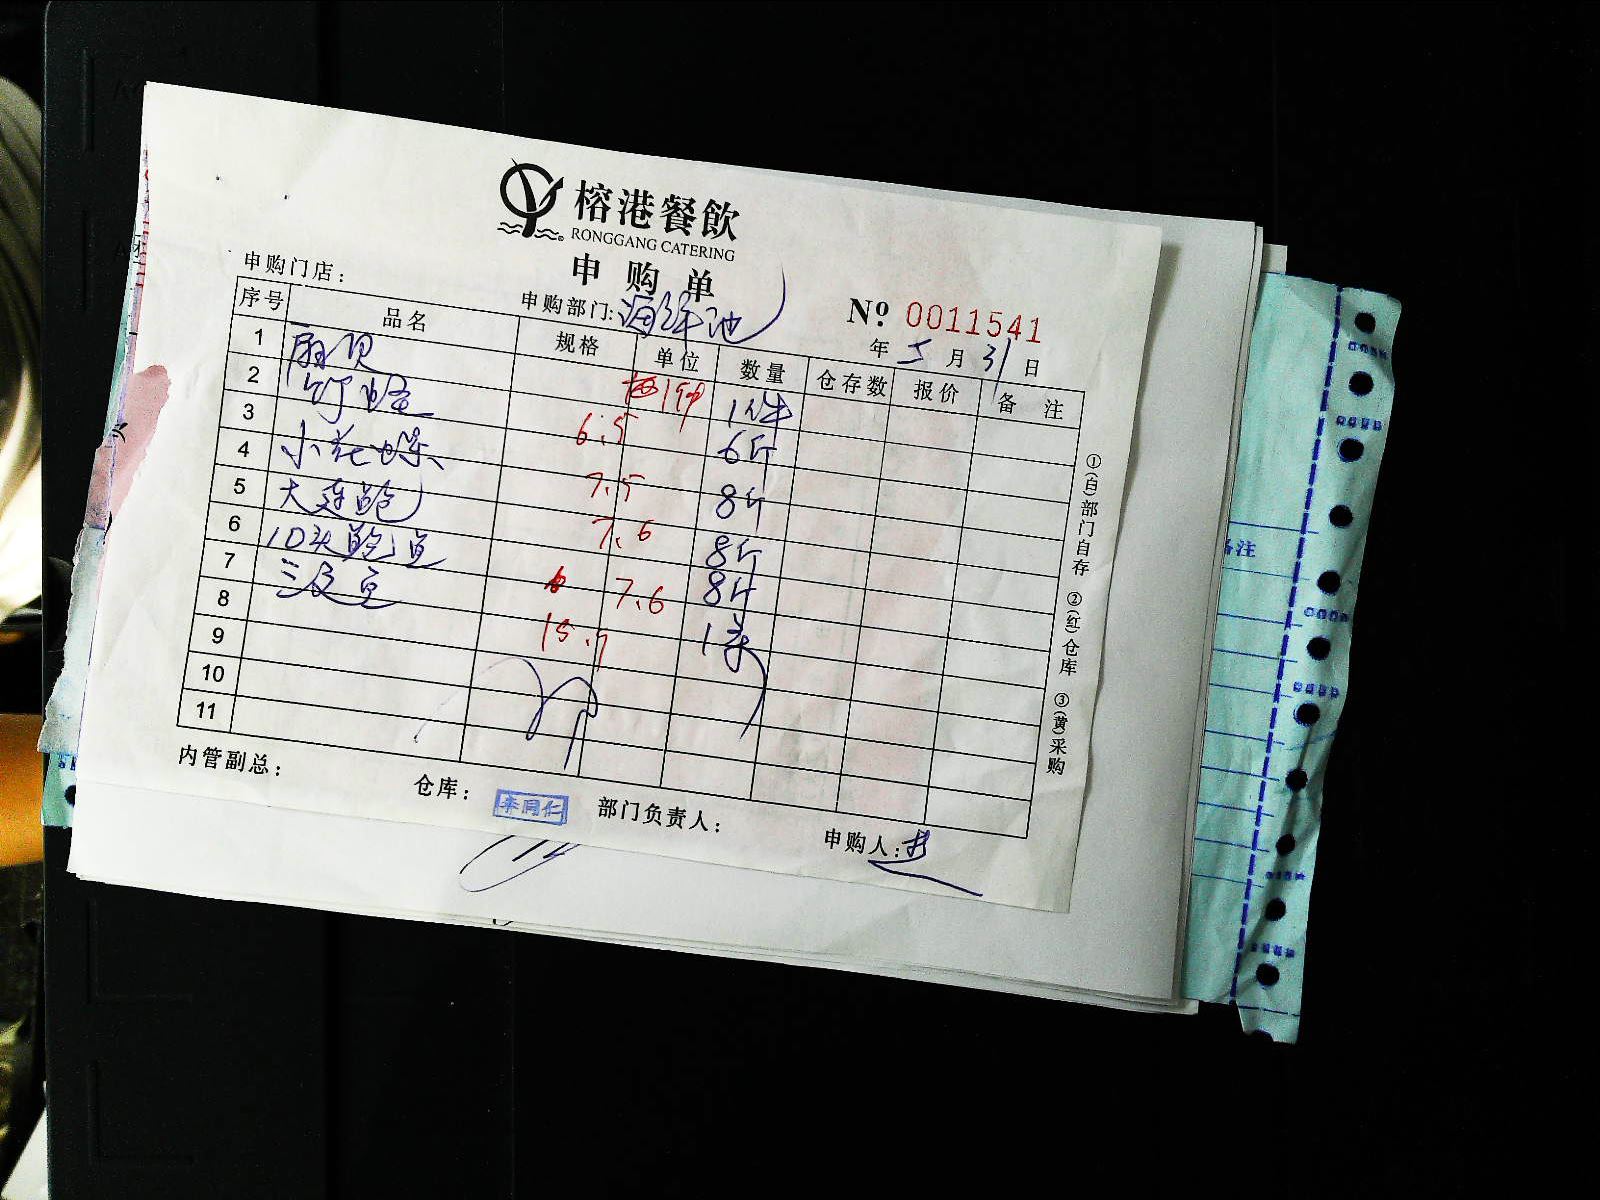 榕港餐飲
RONGGANG CATERING
申购单
申购门店：
申购部门：海鲜池
№ 0011541
年 5 月 31 日
序号 品名 规格 单位 数量 仓存数 报价 备注
1 扇贝 1件
2 竹蛏 6.5 6斤
3 小花螺 7.5 8斤
4 大连鲍 7.6 8斤
5 10头鲍鱼 7.6 8斤
6 15.7 1条
7
8
9
10
11
①(白)部门自存 ②(红)仓库 ③(黄)采购
内管副总：
仓库： 李同仁
部门负责人：
申购人：
备注